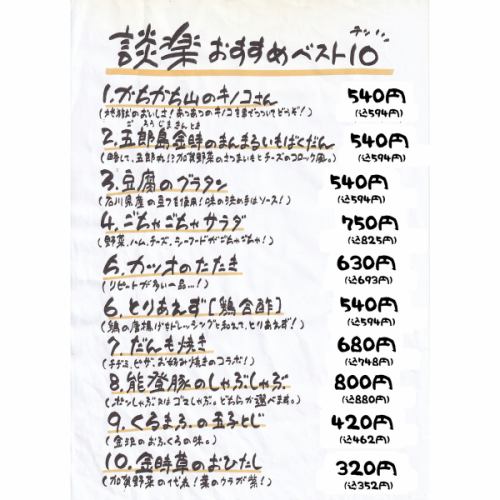 談楽 おすすめベスト10
テン
1. かちかち山のキノコさん 540円
(込594円)
ごろうじまきんとき
2. 五郎島金時のまんまるいもばくだん 540円
(込594円)
3. 豆腐のグラタン 540円
(石川県産の豆フを使用!味の決め手はソース!) (込594円)
4. ごちゃごちゃサラダ 750円
(野菜、ハム、チーズ、シーフードがごちゃごちゃ!) (込825円)
5. カツオのたたき 630円
(リピートが多い一品…!) (込693円)
6. とりあえず[鶏合酢] 540円
(鶏の唐揚げをドレッシングと和えて、とりあえず!) (込594円)
7. だんも焼き 680円
(チヂミ、ピザ、お好み焼きのコラボ!) (込748円)
8. 能登豚のしゃぶしゃぶ 800円
(ポンしゃぶ又はゴマしゃぶ。どちらか選べます。) (込880円)
9. くるまふの玉子とじ 420円
(金沢のおふくろの味。) (込462円)
10. 金時草のおひたし 320円
(加賀野菜の代表!葉のウラが紫!) (込352円)